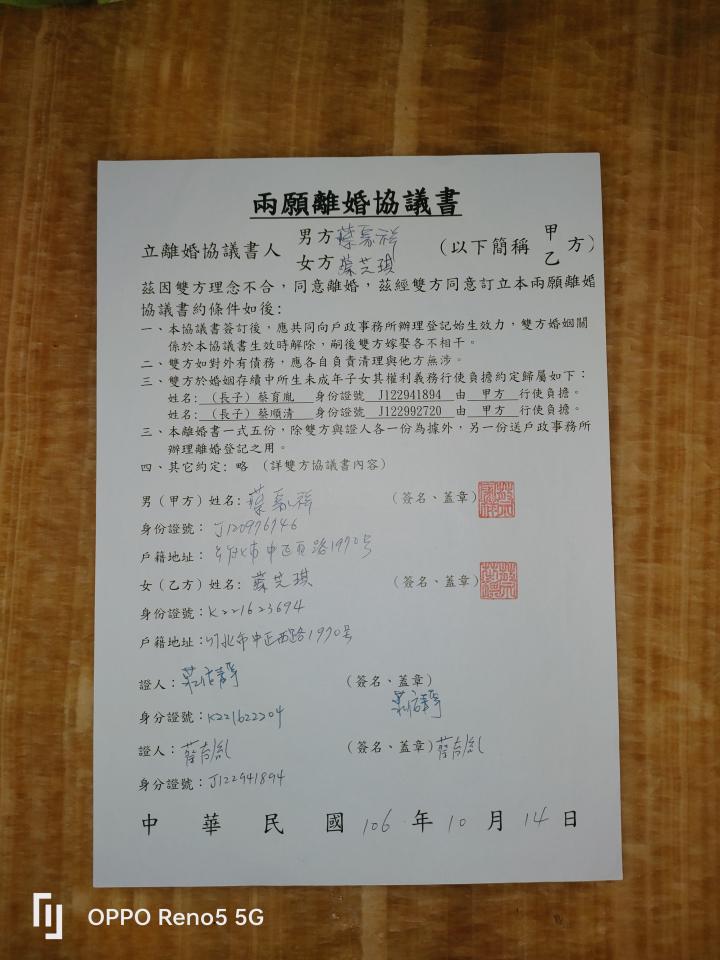 兩願離婚協議書
立離婚協議書人 男方 蔡 祥 (以下簡稱 甲 方)
女方 蘇芝琪 乙
茲因雙方理念不合,同意離婚,茲經雙方同意訂立本兩願離婚
協議書約條件如後:
一、本協議書簽訂後,應共同向戶政事務所辦理登記始生效力,雙方婚姻關
係於本協議書生效時解除,嗣後雙方嫁娶各不相干。
二、雙方如對外有債務,應各自負責清理與他方無涉。
三、雙方於婚姻存續中所生未成年子女其權利義務行使負擔約定歸屬如下:
姓名:(長子)蔡育胤 身份證號 J122941894 由 甲方 行使負擔。
姓名:(長子)蔡順清 身份證號 J122992720 由 甲方 行使負擔。
三、本離婚書一式五份,除雙方與證人各一份為據外,另一份送戶政事務所
辦理離婚登記之用。
四、其它約定:略 (詳雙方協議書內容)
男(甲方)姓名: 蔡 祥 (簽名、蓋章)
身份證號: J120976746
戶籍地址: 竹北市中正西路1970號
女(乙方)姓名: 蘇芝琪 (簽名、蓋章)
身份證號: K221623694
戶籍地址: 竹北市中正西路1970號
證人: (簽名、蓋章)
身分證號: K221622204
證人: 蔡育胤 (簽名、蓋章) 蔡育胤
身分證號: J122941894
中華民國 106 年 10 月 14 日
OPPO Reno5 5G